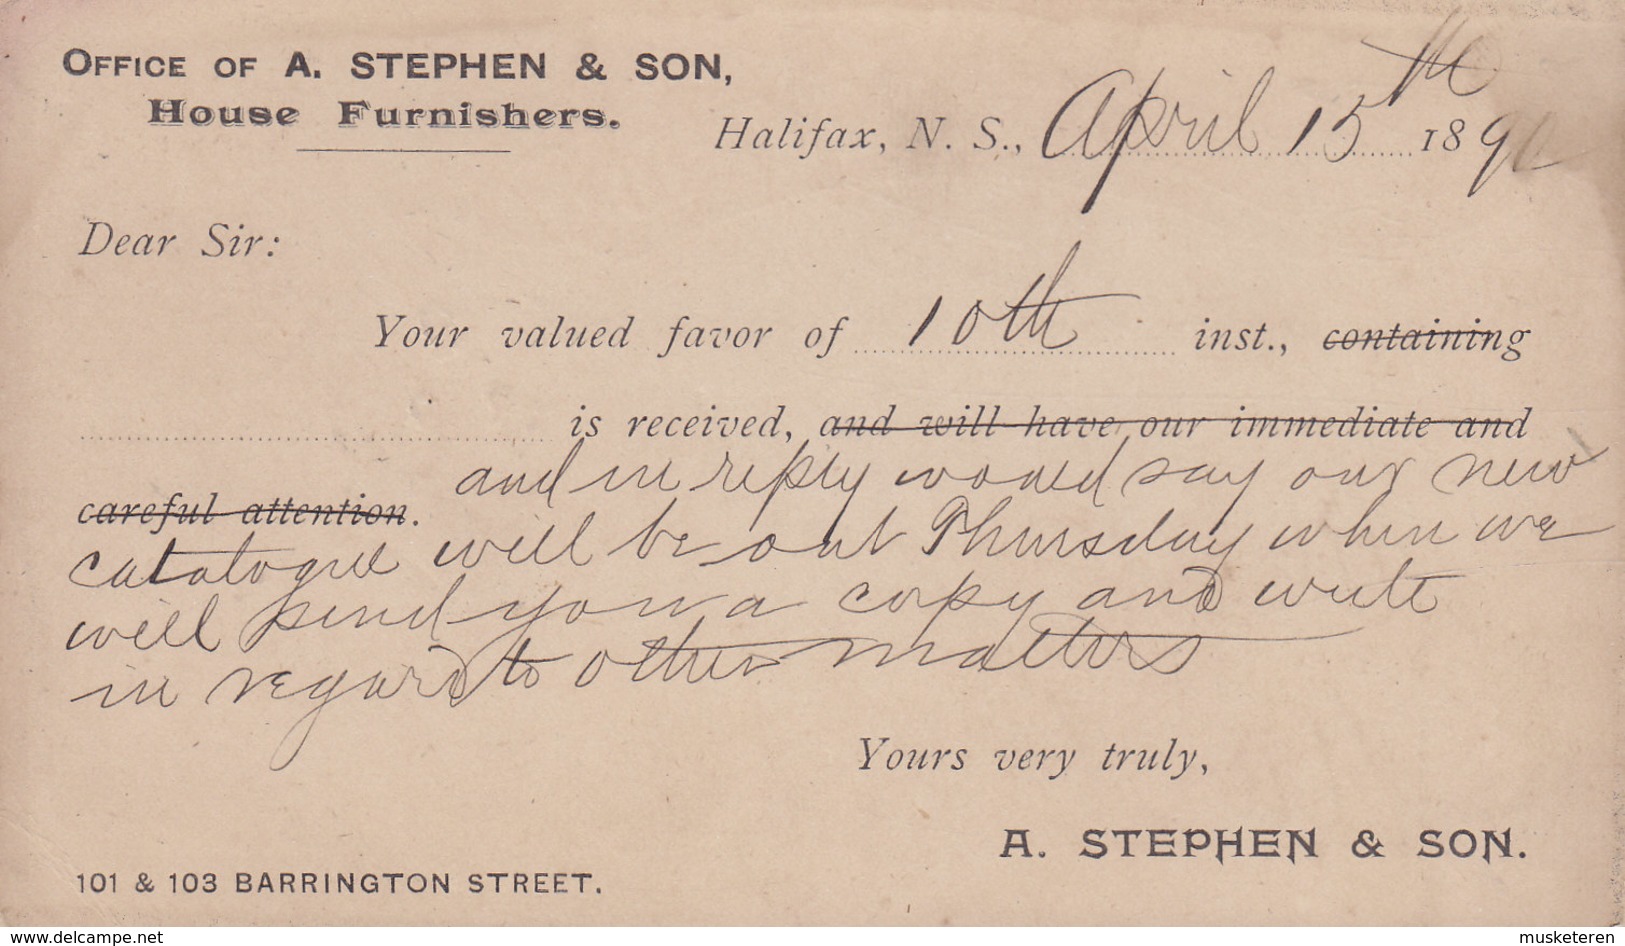 OFFICE OF A. STEPHEN & SON,
House Furnishers.
Halifax, N. S., April 15th 189
Dear Sir:
Your valued favor of 10th inst., containing
is received, and will have our immediate and
careful attention. and in reply would say our new
catalogue will be out Thursday when we
will send you a copy and write
in regard to other matters
Yours very truly,
A. STEPHEN & SON.
101 & 103 BARRINGTON STREET.
www.delcampe.net
musketeren